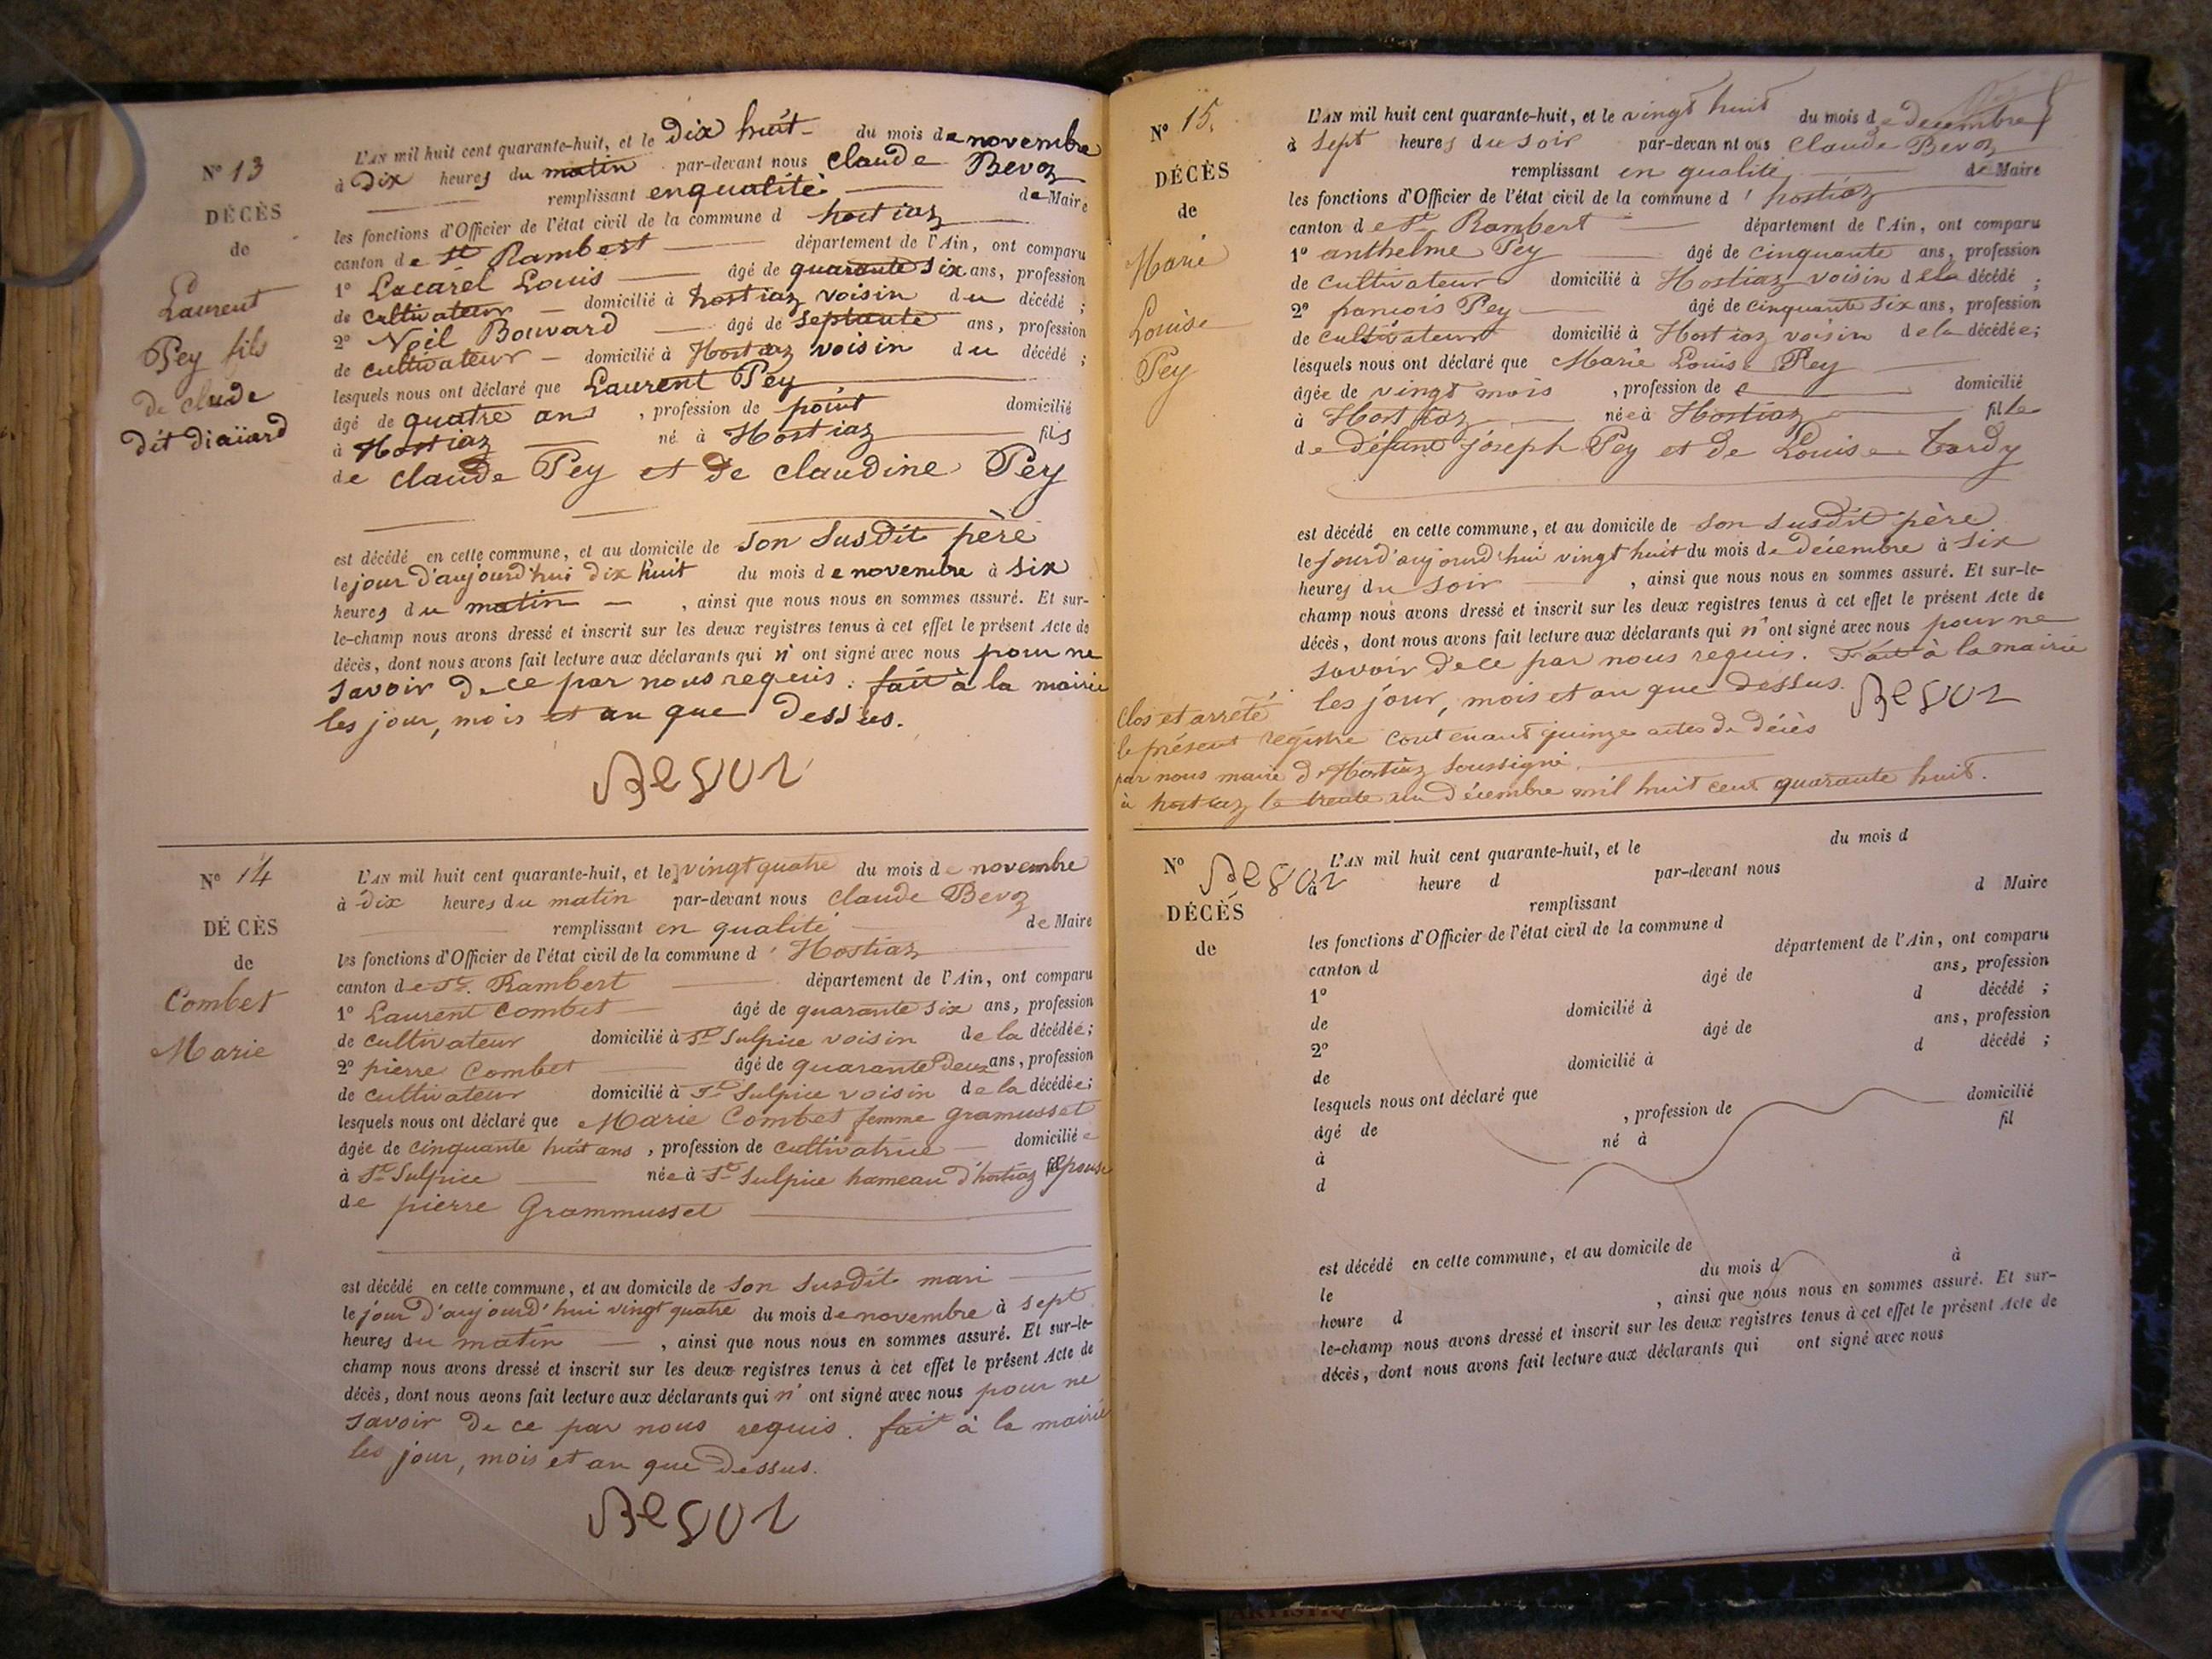 N° 13
DÉCÈS
de
Laurent
Pey fils
de clude
dit diaïard
L'AN mil huit cent quarante-huit, et le dix huit du mois de novembre
à dix heures du matin par-devant nous claude Bevoz
remplissant en qualité de Maire
les fonctions d'Officier de l'état civil de la commune d hostiaz
canton de St Rambert département de l'Ain, ont comparu
1° Lacarel Louis âgé de quarante six ans, profession
de cultivateur domicilié à hostiaz voisin du décédé ;
2° Noël Bouvard âgé de septante ans, profession
de cultivateur domicilié à Hostiaz voisin du décédé ;
lesquels nous ont déclaré que Laurent Pey
âgé de quatre ans, profession de point domicilié
à Hostiaz né à Hostiaz fils
de claude Pey et de claudine Pey
est décédé en cette commune, et au domicile de son susdit père
le jour d'aujourd'hui dix huit du mois de novembre à six
heures du matin , ainsi que nous nous en sommes assuré. Et sur-
le-champ nous avons dressé et inscrit sur les deux registres tenus à cet effet le présent Acte de
décès, dont nous avons fait lecture aux déclarants qui n' ont signé avec nous pour ne
savoir de ce par nous requis. fait à la mairie
les jour, mois et an que dessus.
Bevoz
N° 14
DÉCÈS
de
Combet
Marie
L'AN mil huit cent quarante-huit, et le vingt quatre du mois de novembre
à dix heures du matin par-devant nous claude Bevoz
remplissant en qualité de Maire
les fonctions d'Officier de l'état civil de la commune d' Hostiaz
canton de St. Rambert département de l'Ain, ont comparu
1° Laurent Combet âgé de quarante six ans, profession
de cultivateur domicilié à St Sulpice voisin de la décédée ;
2° pierre Combet âgé de quarante deux ans, profession
de cultivateur domicilié à St Sulpice voisin de la décédée ;
lesquels nous ont déclaré que Marie Combet femme gramusset
âgée de cinquante huit ans , profession de cultivatrice domiciliée
à St Sulpice née à St Sulpice hameau d'hostiaz épouse
de pierre Grammusset
est décédé en cette commune, et au domicile de son susdit mari
le jour d'aujourd'hui vingt quatre du mois de novembre à sept
heures du matin , ainsi que nous nous en sommes assuré. Et sur-le-
champ nous avons dressé et inscrit sur les deux registres tenus à cet effet le présent Acte de
décès, dont nous avons fait lecture aux déclarants qui n' ont signé avec nous pour ne
savoir de ce par nous requis. fait à la mairie
les jour, mois et an que dessus.
Bevoz
N° 15.
DÉCÈS
de
Marie
Louise
Pey
L'AN mil huit cent quarante-huit, et le vingt huit du mois de decembre
à sept heures du soir par-devan nt ous Claude Bevoz
remplissant en qualité de Maire
les fonctions d'Officier de l'état civil de la commune d' hostiaz
canton de St Rambert département de l'Ain, ont comparu
1° anthelme Pey âgé de cinquante ans, profession
de cultivateur domicilié à Hostiaz voisin de la décédé ;
2° francois Pey âgé de cinquante six ans, profession
de cultivateur domicilié à Hostiaz voisin de la décédée ;
lesquels nous ont déclaré que Marie Louise Pey
âgée de vingt mois , profession de domicilié
à Hostiaz née à Hostiaz fille
de défunt joseph Pey et de Louise Tardy
est décédé en cette commune, et au domicile de son susdit père
le jour d'aujourd'hui vingt huit du mois de décembre à six
heures du soir , ainsi que nous nous en sommes assuré. Et sur-le-
champ nous avons dressé et inscrit sur les deux registres tenus à cet effet le présent Acte de
décès, dont nous avons fait lecture aux déclarants qui n' ont signé avec nous pour ne
savoir de ce par nous requis. Fait à la mairie
les jour, mois et an que dessus. Bevoz
Clos et arrêté
le présent registre contenant quinze actes de décès
par nous maire d'Hostiaz soussigné.
à hostiaz le trente un décembre mil huit cent quarante huit.
Bevoz
N°
DÉCÈS
de
L'AN mil huit cent quarante-huit, et le du mois d
à heure d par-devant nous
remplissant d Maire
les fonctions d'Officier de l'état civil de la commune d
canton d département de l'Ain, ont comparu
1° âgé de ans, profession
de domicilié à d décédé ;
2° âgé de ans, profession
de domicilié à d décédé ;
lesquels nous ont déclaré que
âgé de , profession de domicilié
à né à fil
d
est décédé en cette commune, et au domicile de
le du mois d à
heure d , ainsi que nous nous en sommes assuré. Et sur-
le-champ nous avons dressé et inscrit sur les deux registres tenus à cet effet le présent Acte de
décès, dont nous avons fait lecture aux déclarants qui ont signé avec nous